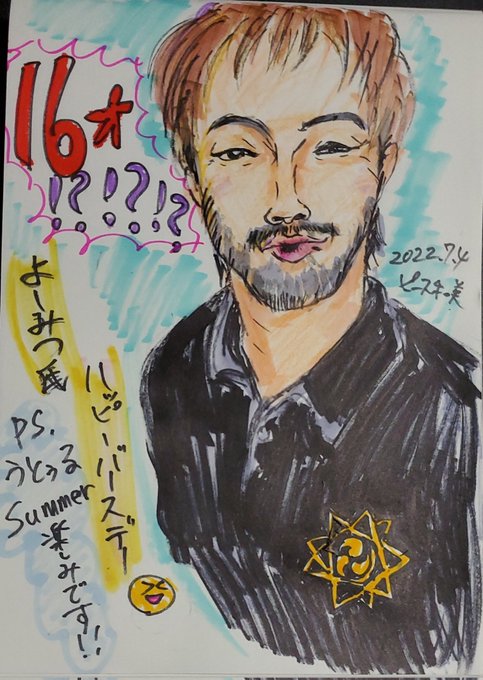 16才
!?!?!?
よーみつ氏
ハッピーバースデー
PS.
うとぅる
Summer
楽しみです!!
2022.7.4